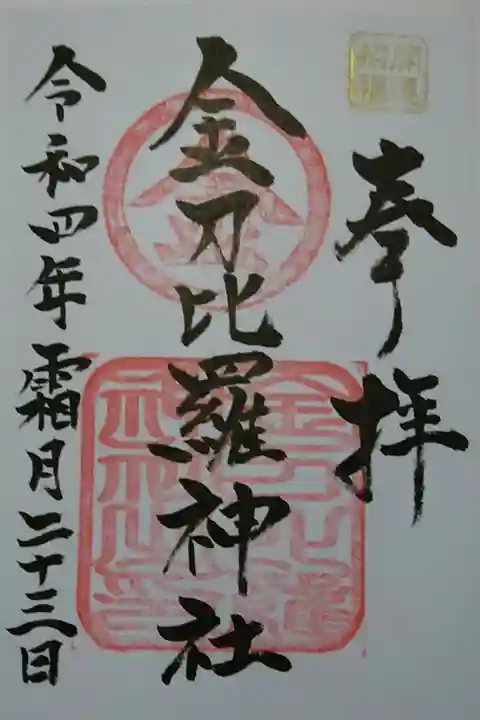 奉拝
金刀比羅神社
令和四年霜月二十三日